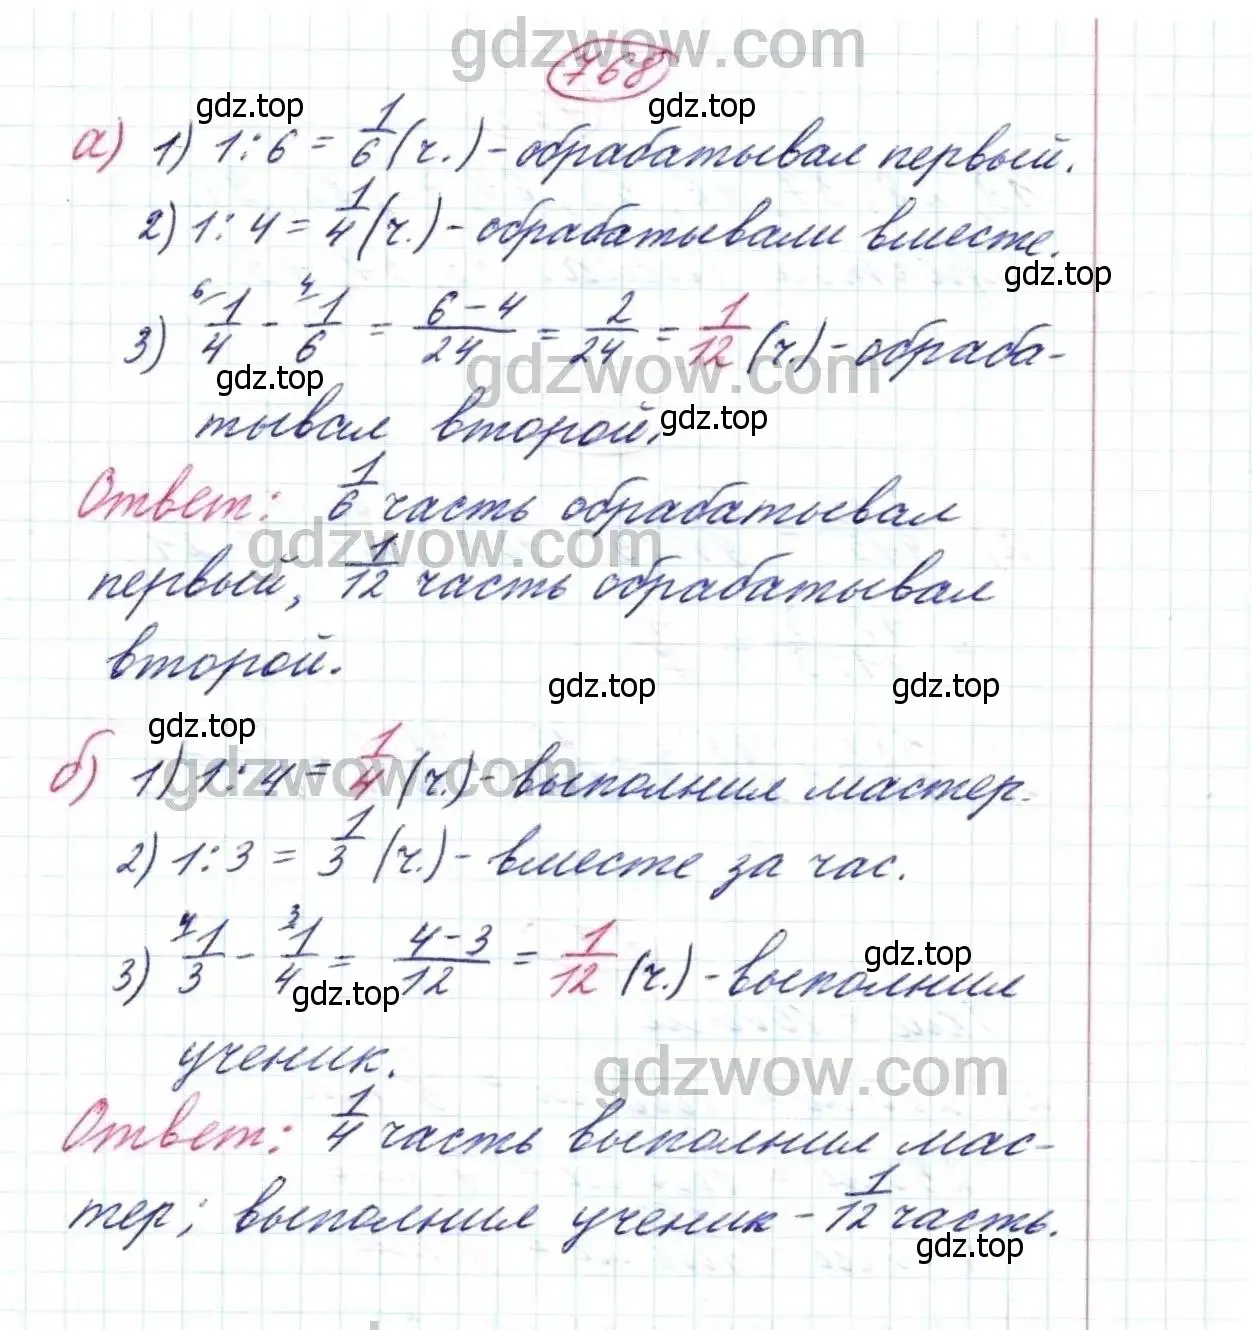 gdzwow.com
768
gdz.top gdz.top
а) 1) 1:6 = 1/6 (ч.) - обрабатывал первый.
2) 1:4 = 1/4 (ч.) - обрабатывали вместе.
gdz.top
3) ⁶⁻1/4 - ⁴⁻1/6 = (6-4)/24 = 2/24 = 1/12 (ч.) - обраба-
gdz.top gdzwow.com
тывал второй. gdz.top
Ответ: 1/6 часть обрабатывал
gdzwow.com
первый, 1/12 часть обрабатывал
второй.
gdz.top gdz.top
gdz.top
б) 1) 1:4 = 1/4 (ч.) - выполнил мастер.
gdzwow.com
2) 1:3 = 1/3 (ч.) - вместе за час.
3) ⁴⁻1/3 - ³⁻1/4 = (4-3)/12 = 1/12 (ч.) - выполнил
gdz.top gdz.top
ученик.
gdzwow.com
Ответ: 1/4 часть выполнил мас-
тер; выполнил ученик - 1/12 часть.
gdz.top